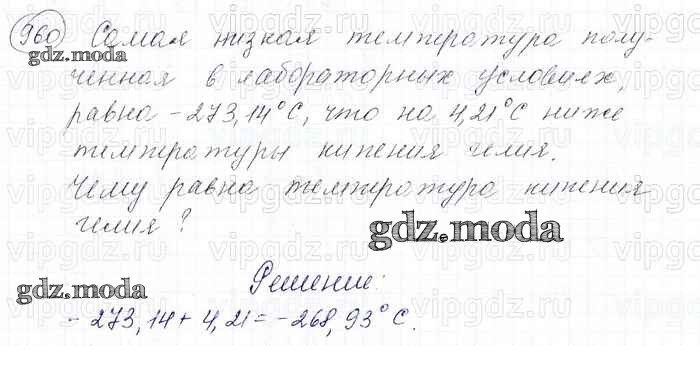 960 Самая низкая температура полу-
ченная в лабораторных условиях,
равна -273,14°С, что на 4,21°С ниже
температуры кипения гелия.
Чему равна температура кипения
гелия?
gdz.moda
Решение:
gdz.moda
- 273,14 + 4,21 = -268,93°С.